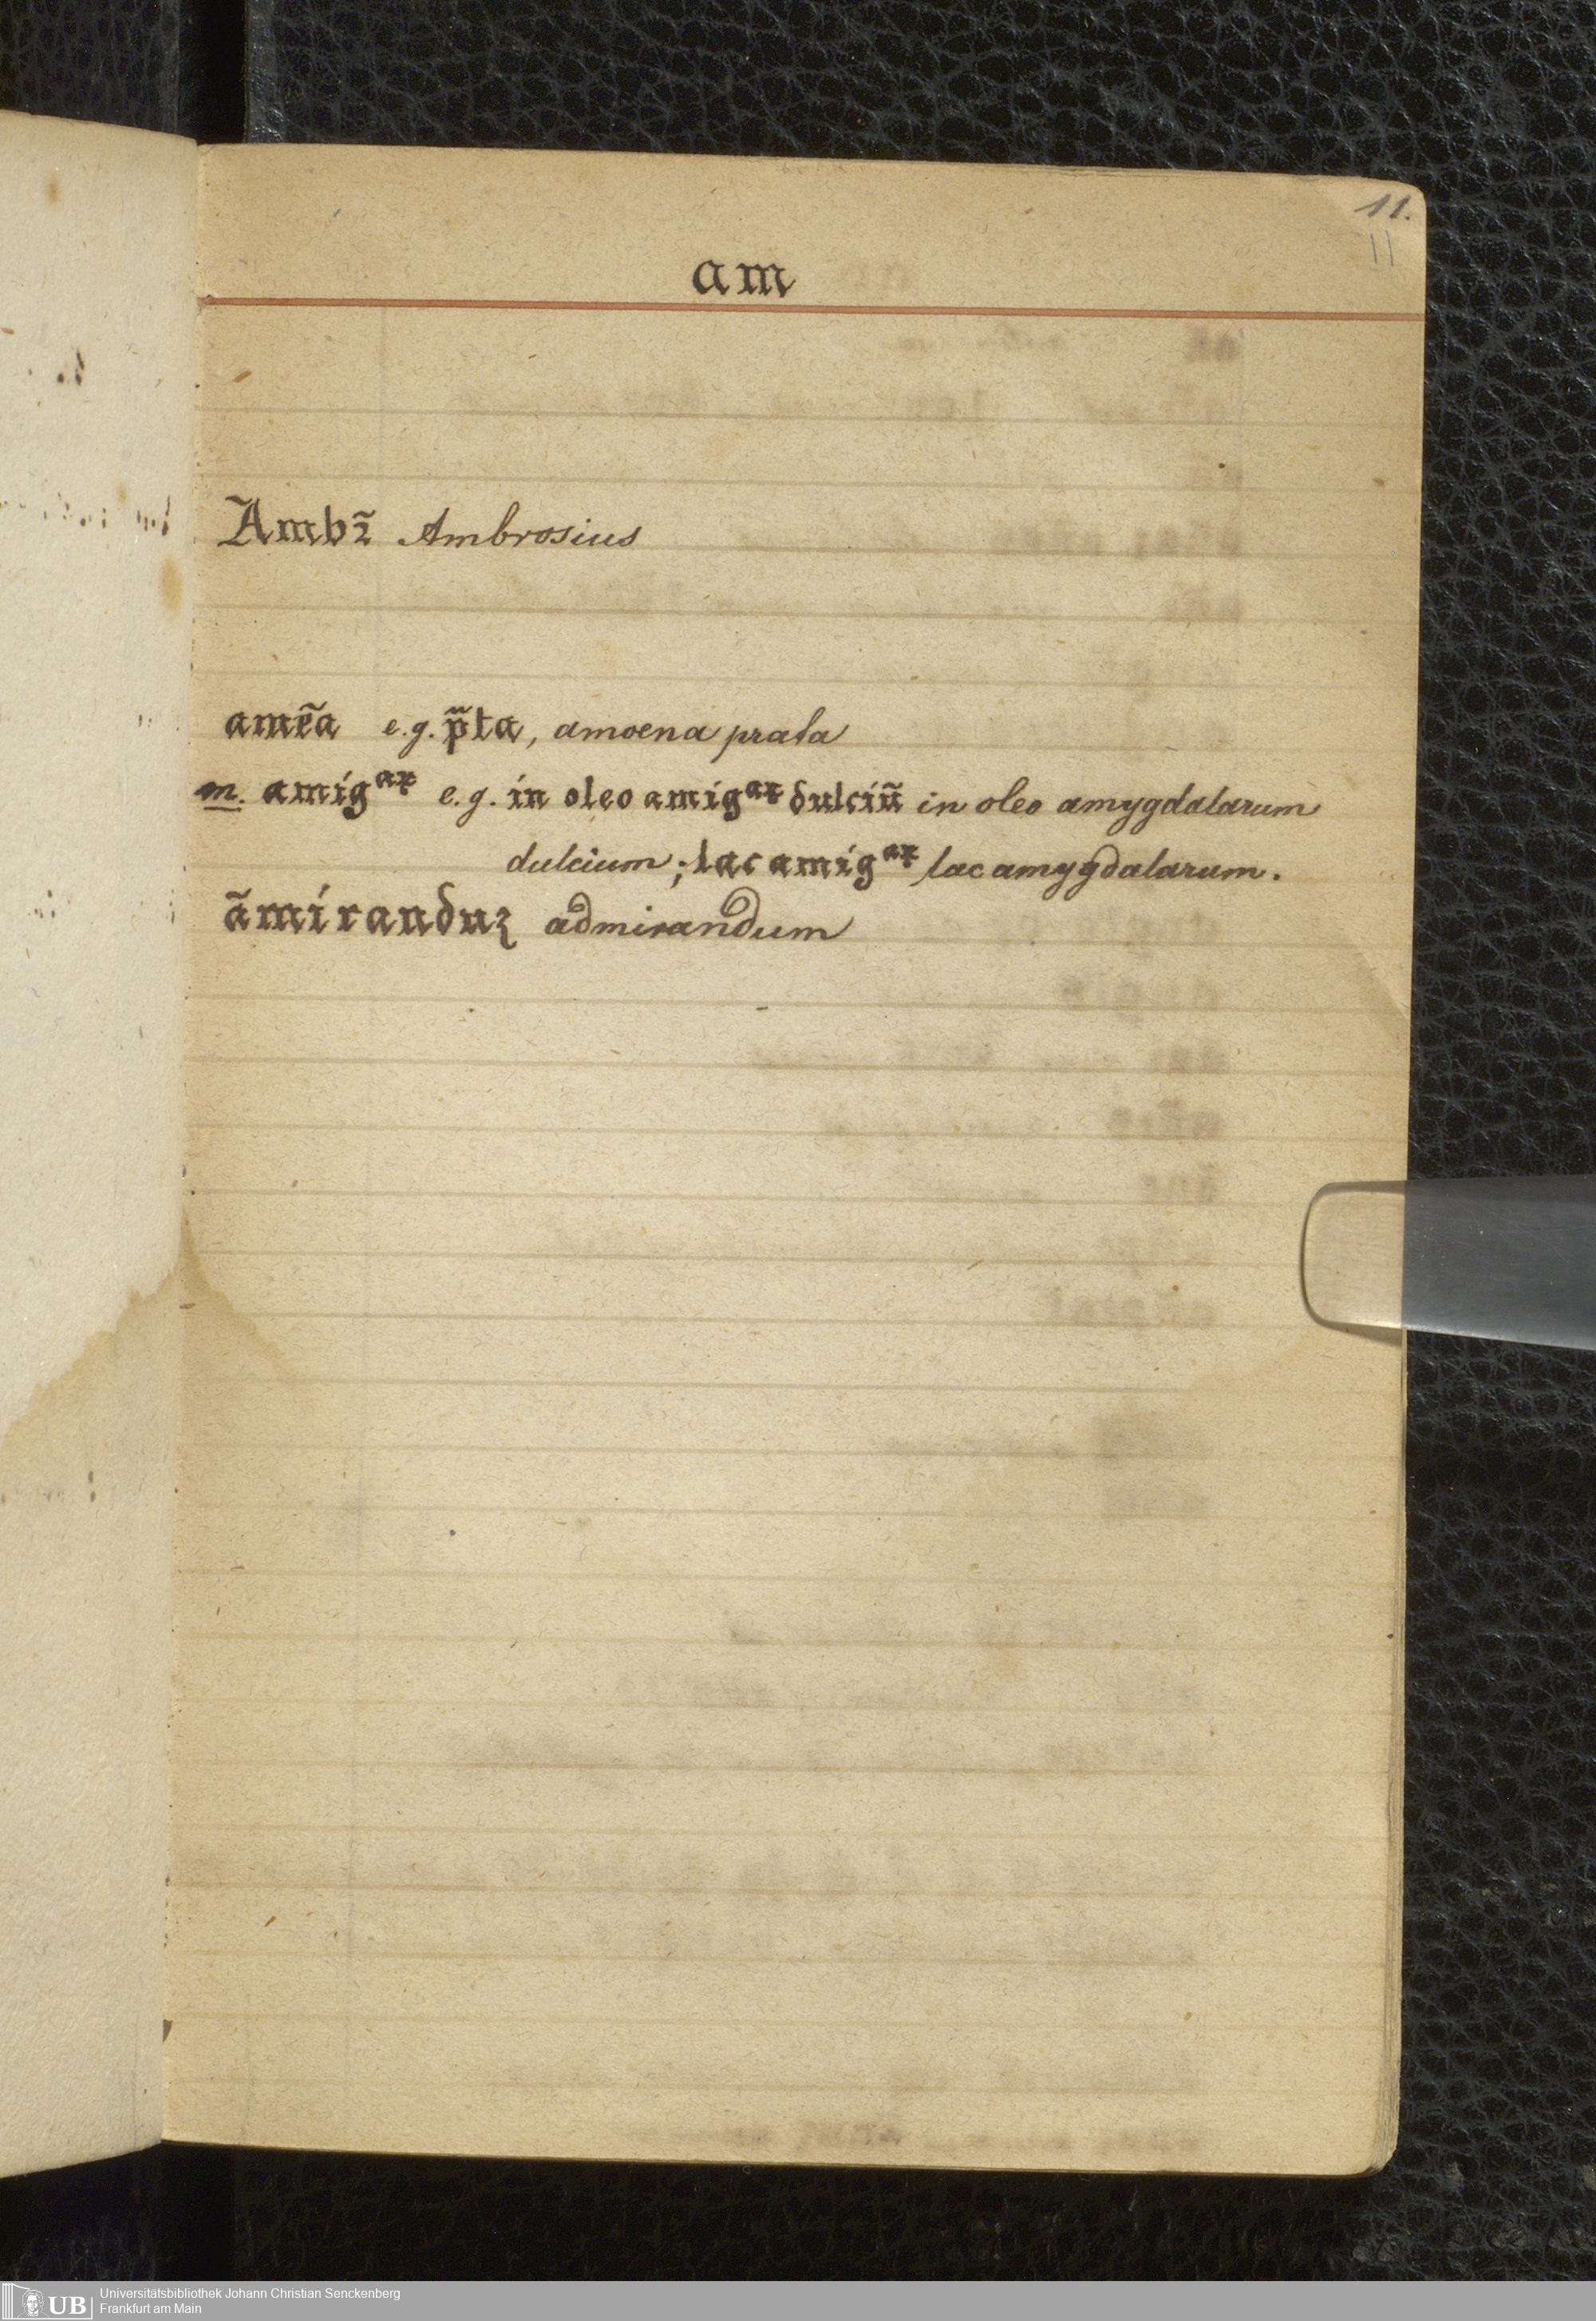 11.
11
am
Ambꝛ̃ Ambrosius
amẽa e.g. p̃ta, amoena prata
m. amigᵃꝝ e.g. in oleo amigᵃꝝ dulciũ in oleo amygdalarum
dulcium; lac amigᵃꝝ lac amygdalarum.
ãmiranduꝫ admirandum
UB Universitätsbibliothek Johann Christian Senckenberg
Frankfurt am Main